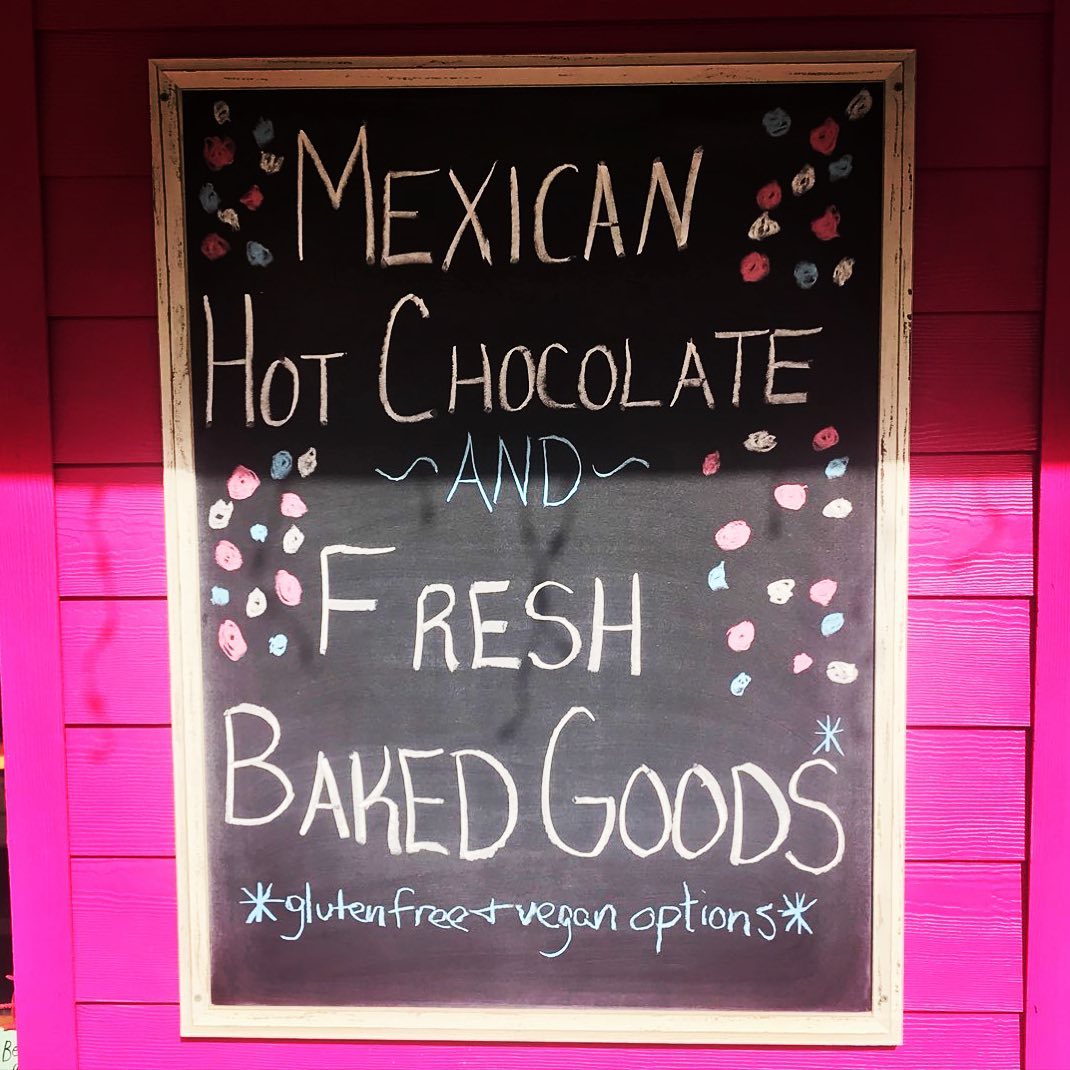 MEXICAN
HOT CHOCOLATE
~AND~
FRESH
BAKED GOODS*
*gluten free + vegan options*
Be